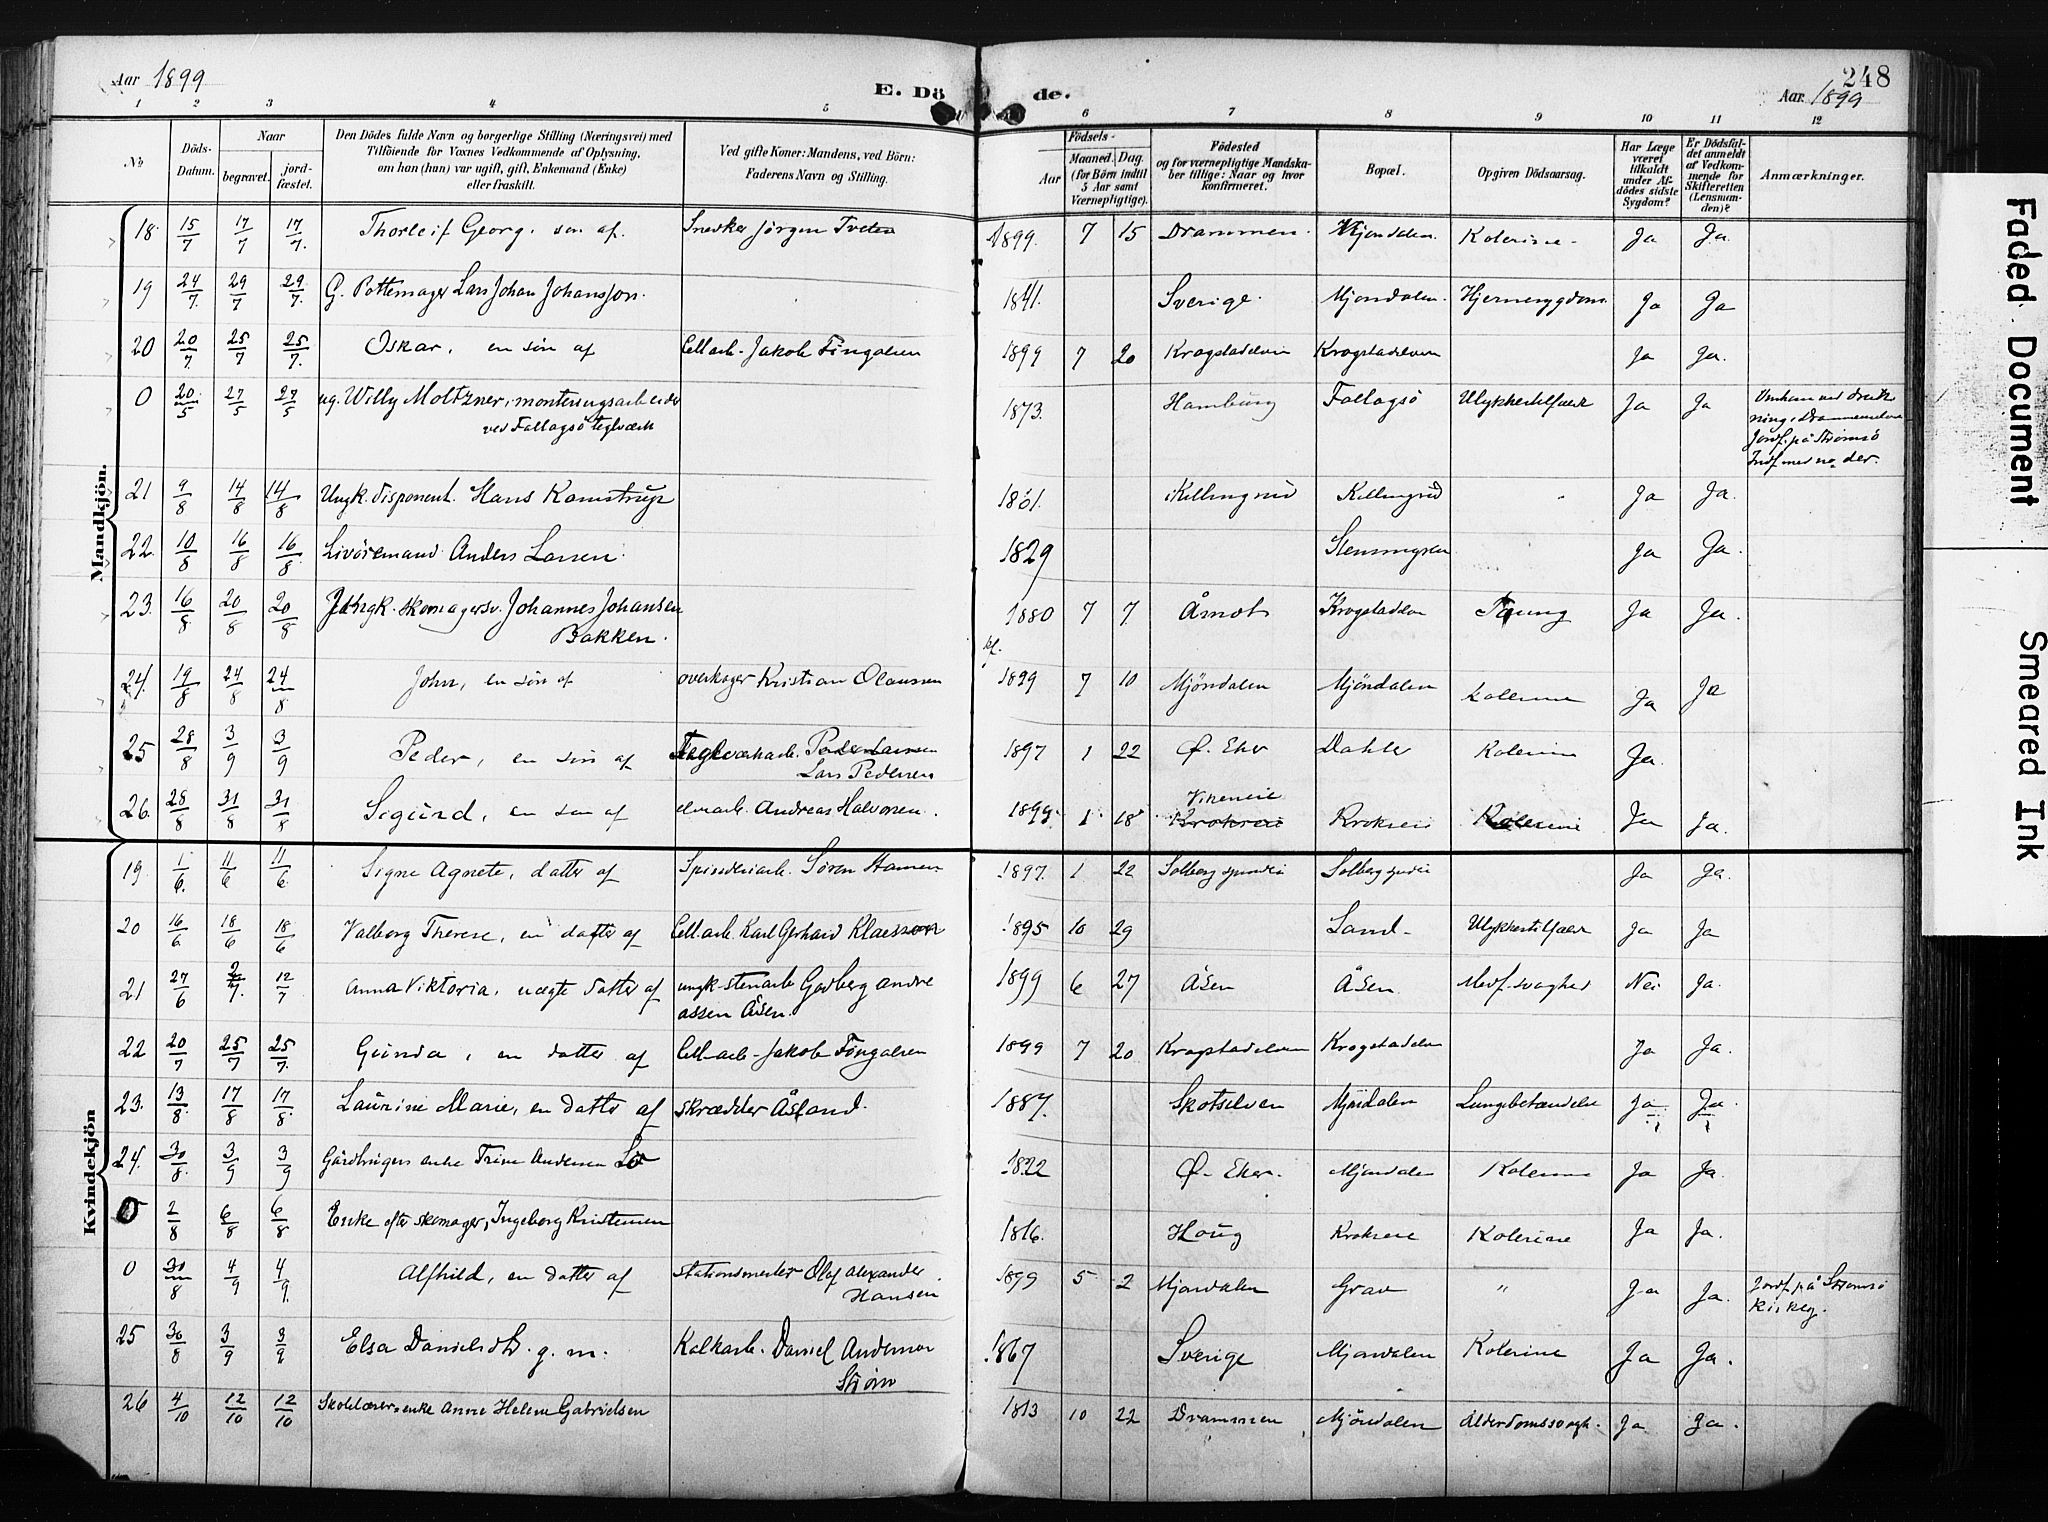 Aar 1899
E. Döde.
248
Aar 1899
1 2 3 4 5 6 7 8 9 10 11 12
No
Döds-Datum.
Naar
begravet.
jord-fæstet.
Den Dödes fulde Navn og borgerlige Stilling (Næringsvei) med
Tilföiende for Voxnes Vedkommende af Oplysning,
om han (hun) var ugift, gift, Enkemand (Enke)
eller fraskilt.
Ved gifte Koner: Mandens, ved Börn:
Faderens Navn og Stilling.
Födsels-
Aar
Maaned. Dag.
(for Börn indtil
5 Aar samt
Værnepligtige).
Födested
og for værnepligtige Mandska-
ber tillige: Naar og hvor
konfirmeret.
Bopæl.
Opgiven Dödsaarsag.
Har Læge
været
tilkaldt
under Af-
dödes sidste
Sygdom?
Er Dödsfal-
det anmeldt
af Vedkom-
mende for
Skifteretten
(Lensman-
den)?
Anmærkninger.
Mandkjön.
18. 15/7 17/7 17/7. Thorleif Georg. sön af. Snedker Jörgen Tveten 1899. 7 15 Drammen. Mjöndalen. Kolerine. Ja Ja.
19 24/7. 29/7 29/7. G. Pottemager Lars Johan Johansson. 1841. Sverige. Mjöndalen. Hjernesygdom. Ja Ja
20 20/7. 25/7 25/7. Oskar, en sön af Cell.arb. Jakob Fingalsen 1899 7 20 Krogstadelven Krogstadelven Ja Ja.
0 20/5 27/5 27/5 ug. Willy Moltzner, monteringsarbeider
ved Follagsö teglværk
1873. Hamburg Follagsö Ulykkestilfælde Ja Ja
Omkom ved drukning i Drammenselven
Jordf. på Strömsö
Indf. med no. der.
21 9/8 14/8 14/8 Ungk. disponent. Hans Kamstrup 1861. Killingrud Killingrud " Ja Ja.
22. 10/8 16/8 16/8. Livöremand Anders Larsen. 1829 Stenmyren Ja Ja.
23. 16/8 20/8 20/8 Ungk. skomagersv. Johannes Johansen
Bakken.
1880 7 7 Åmot Krogstadelven Ja Ja.
24. 19/8 24/8 24/8 John, en sön af overkoger Kristian Olaussen 1899 7 10 Mjöndalen Mjöndalen Kolerine Ja Ja
25 28/8 3/9 3/9 Peder, en sön af Teglværkarb. Peder Larsen
Lars Pedersen
1897 1 22 Ö. Eker Dahler Kolerine Ja.
26. 28/8 31/8 31/8 Sigurd, en sön af elvearb. Andreas Halvorsen. 1899. 1 18 Vikeneie
Krokeneie Krokeneie Kolerine Ja Ja.
Kvindekjön
19. 1/6. 11/6 11/6. Signe Agnete, datter af Spinderiarb. Sören Hansen 1897. 1 22 Solberg spinderi Solberg spinderi Ja Ja.
20 16/6. 18/6 18/6 Valborg Therese, en datter af Cell.arb. Karl Gerhard Klaesson 1895 10 29 Sand. Ulykkestilfælde Ja Ja
21 27/6 12/7 Anna Viktoria, uægte datter af ungk. stenarb. Godberg Andre
assen Åsen.
1899 6 27 Åsen Åsen Medf. svaghed Nei Ja.
22 20/7 25/7 25/7. Gunda, en datter af Cell.arb. Jakob Fingalsen 1899 7 20 Krogstadelven Krogstadelven Ja Ja.
23. 13/8. 17/8 17/8. Laurine Marie, en datter af skrædder Åsland. 1887. Skotselven Mjöndalen Lungebetændelse Ja. Ja.
24. 30/8. 3/9 3/9 Gårdbrugers enke Trine Andersen 1822 Ö. Eker. Mjöndalen Kolerine Ja Ja.
0 2/8 6/8 6/8 Enke efter skomager, Ingeborg Kristensen 1816. Houg Krokeneie Kolerine Ja Ja.
0 30/8 4/9 4/9. Alfhild, en datter af stationsmester Olaf Alexander
Hansen
1899 5 2 Mjöndalen Grav " Ja Ja. Jordf. på Strömsö
kirkeg.
25 30/8 3/9 3/9 Elsa Danielsd. g. m. Kalkarb. Daniel Anderson
Ström
1867 Sverige Mjöndalen Kolerine Ja Ja.
26 4/10 12/10 12/10 Skolelærerenke Anne Helene Gabrielsen 1813 10 22 Drammen Mjöndalen Alderdomssvagh. Ja Ja.
Faded Document
Smeared Ink